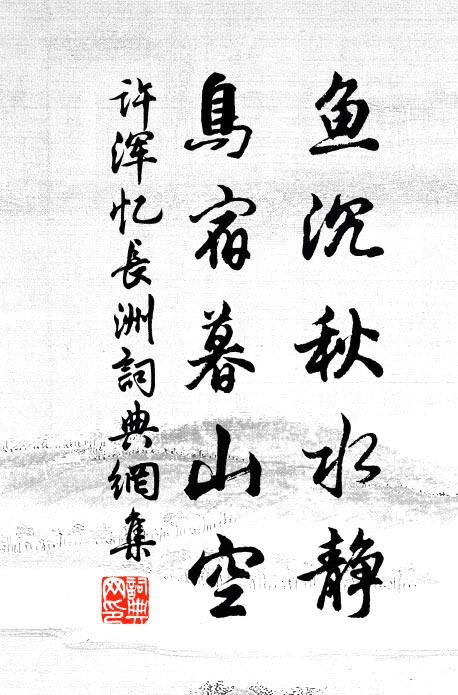 鱼沉秋水静
鳥宿暮山空
许浑忆長洲詞典網集
詞典
网印